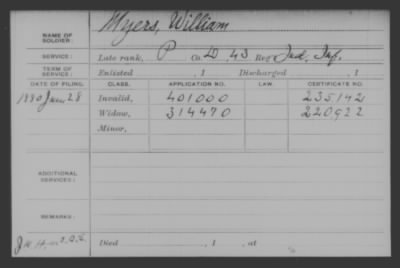 Myers, William
NAME OF
SOLDIER:
SERVICE:
Late rank, P Co. D, 43 Reg Ind. Inf.
TERM OF
SERVICE:
Enlisted , 1 Discharged , 1
DATE OF FILING. CLASS. APPLICATION NO. LAW. CERTIFICATE NO.
1880 June 28 Invalid, 401000 235142
Widow, 314470 220922
Minor,
ADDITIONAL
SERVICES:
REMARKS:
Died , 1 , at